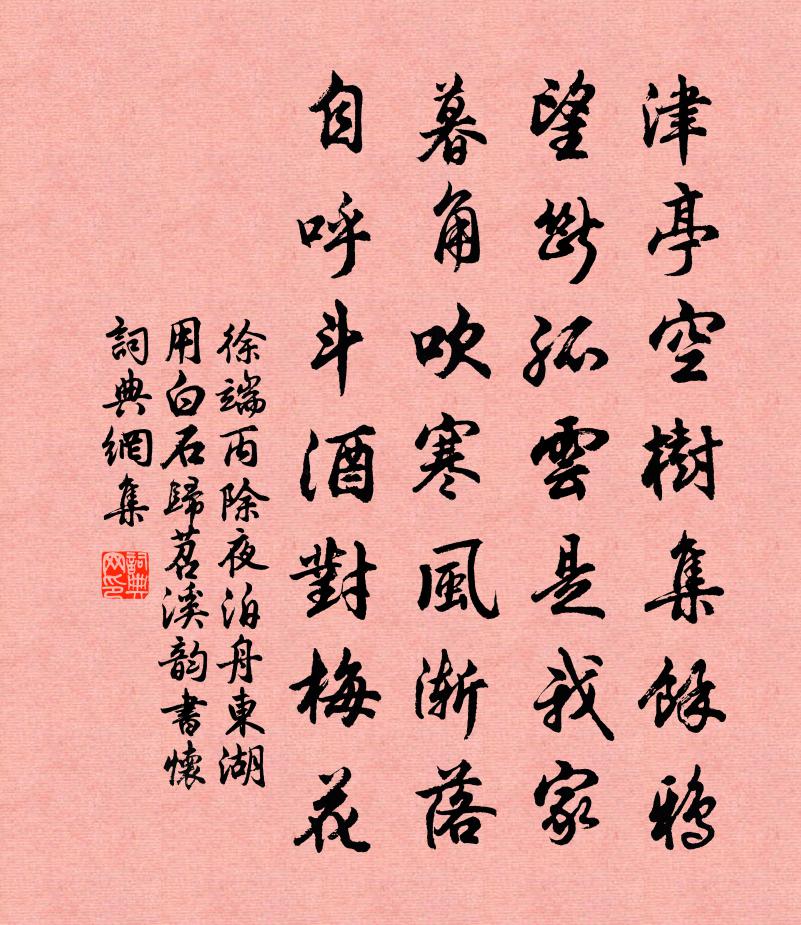 津亭空樹集餘鴉
望斷孤雲是我家
暮角吹寒風漸落
自呼斗酒對梅花
徐端丙除夜泊舟東湖
用白石歸苕溪韵書懷
詞典網集
詞典网印